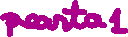 pearta 1